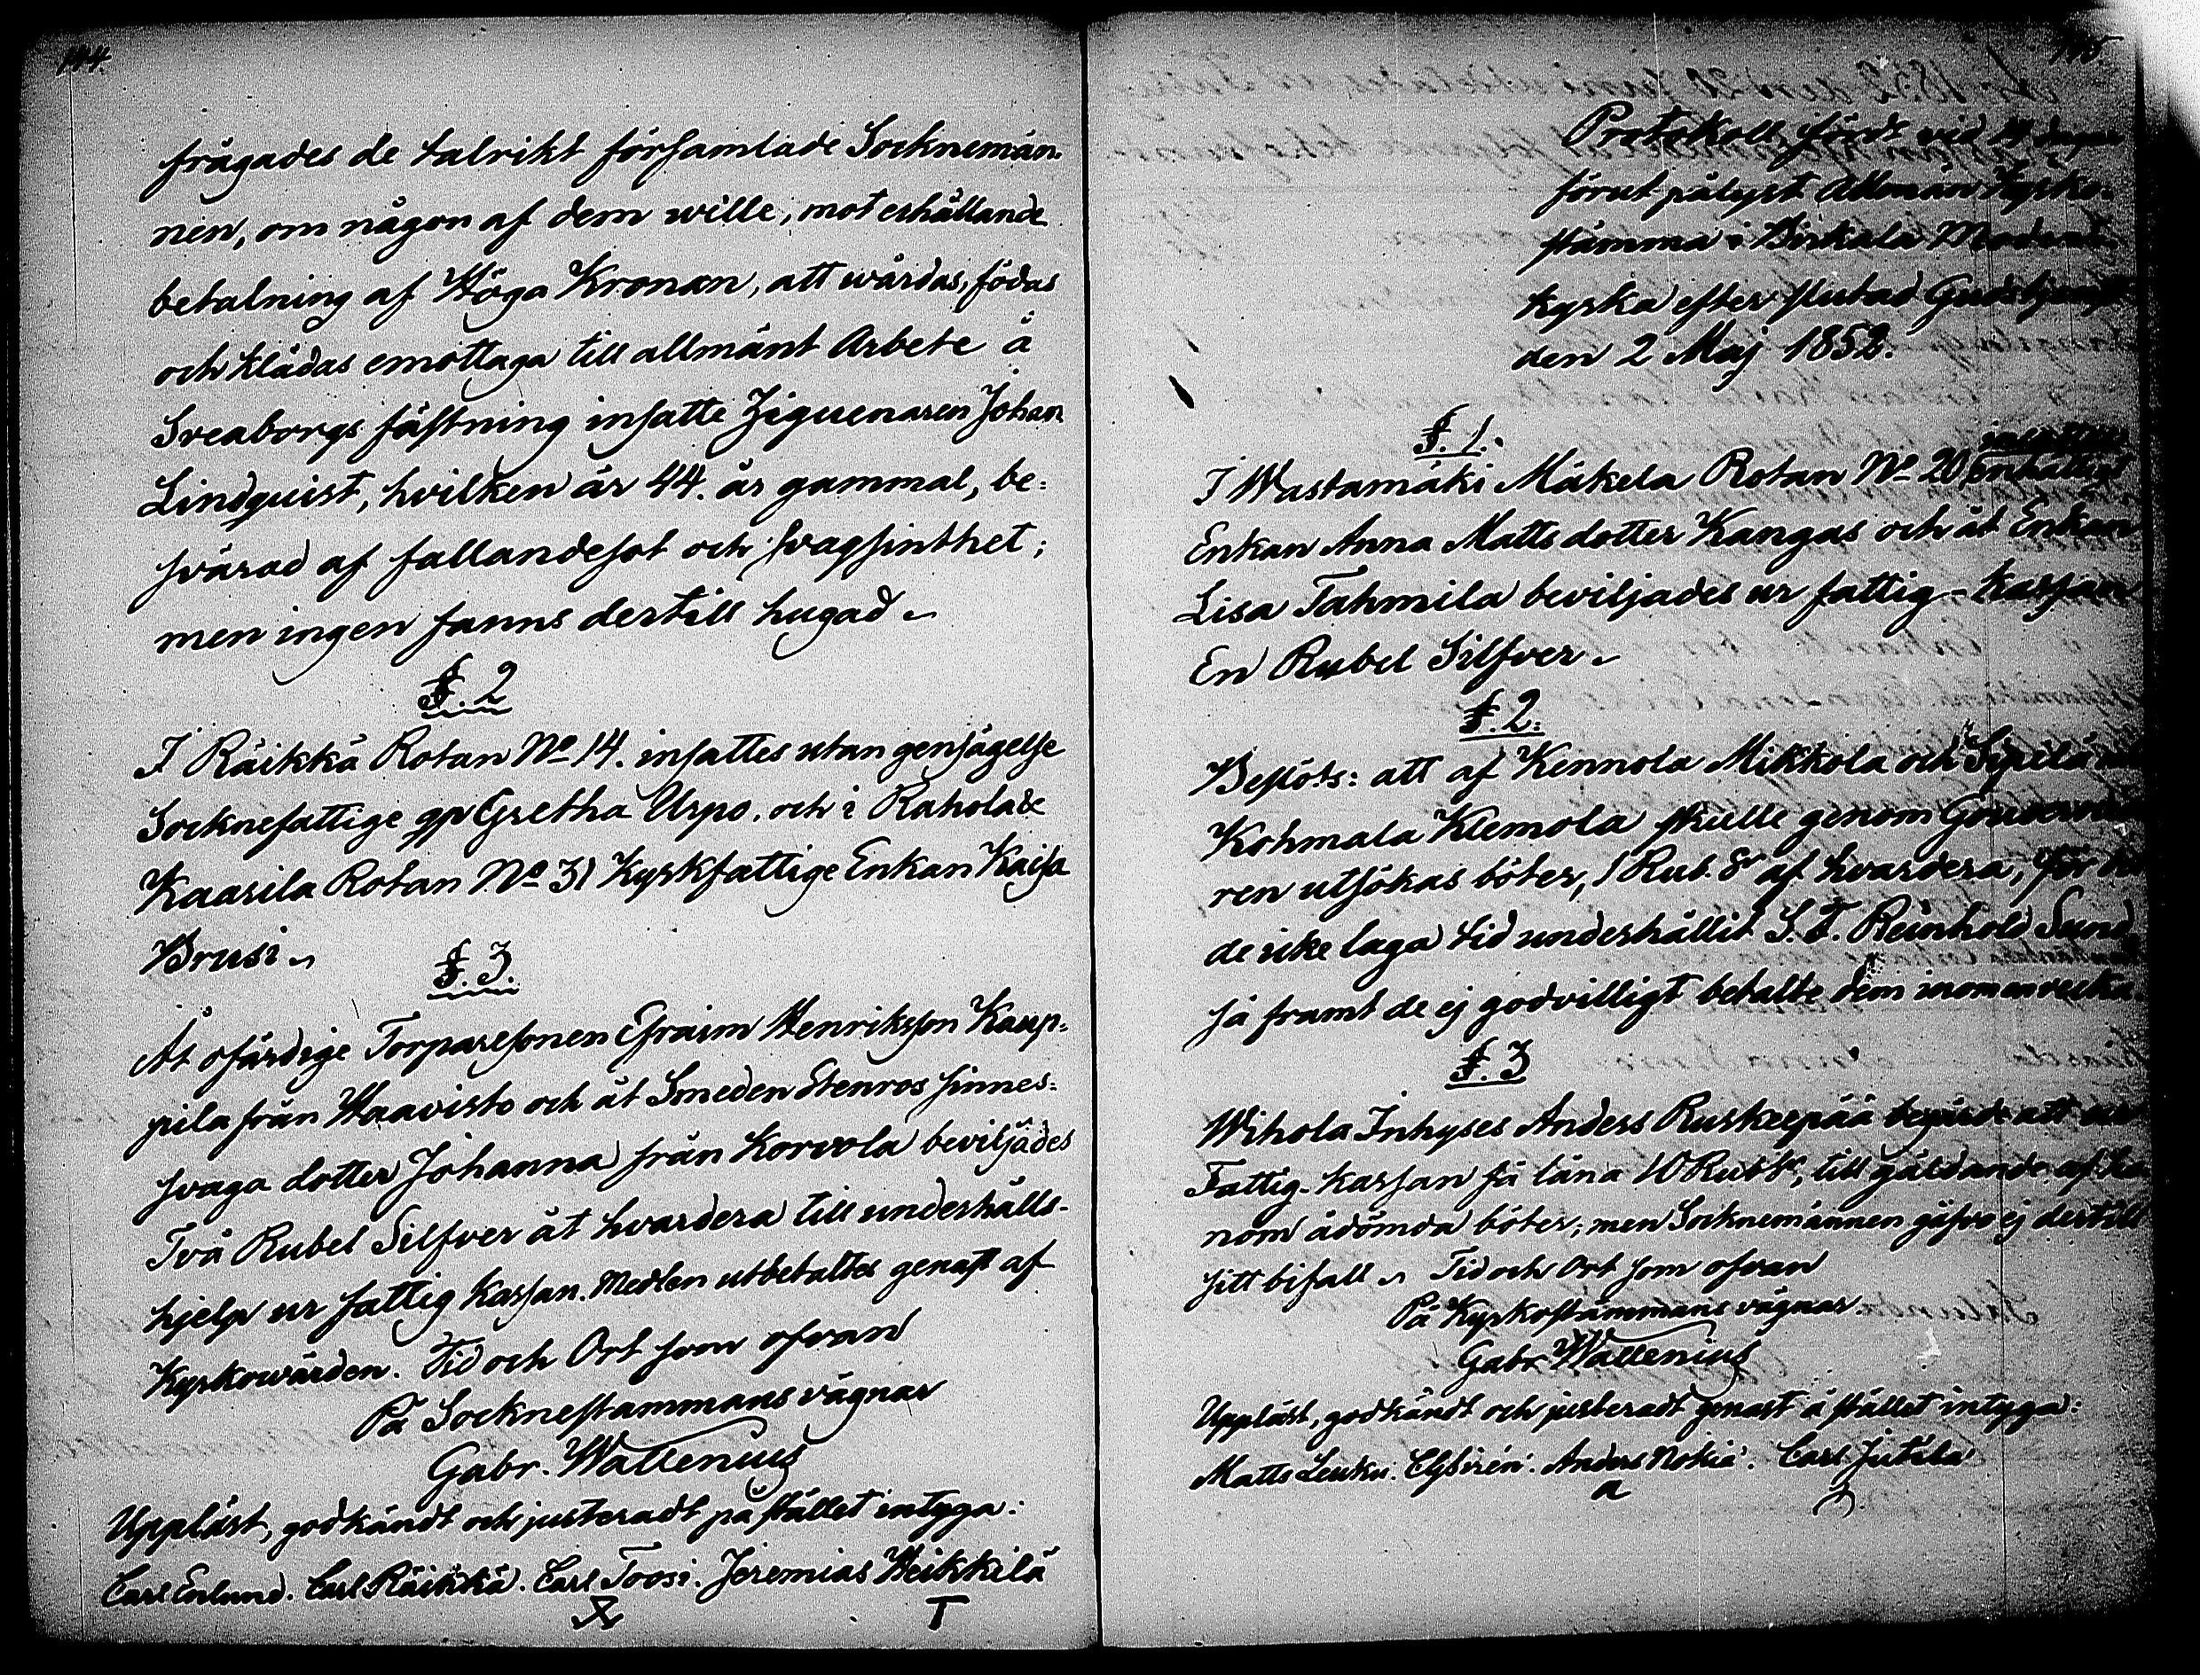 144.
frågades de talrikt församlade Socknemän-
nen, om någon af dem wille, mot erhållande
betalning af Höga Kronan, att wårdas, födas
och klädas emottaga till allmänt Arbete å
Sveaborgs fästning insatte Ziguenaren Johan
Lindquist, hvilken är 44. år gammal, be=
svärad af fallandesot och svagsinthet;
men ingen fanns dertill hugad.
§. 2
I Räikkä Rotan No 14. insattes utan gensägelse
Socknefattige gp Gretha Urpo. och i Rahola &
Kaarila Rotan No 31 Kyrkfattige Enkan Kaisa
Brusi.
§. 3.
Åt ofärdige Torparesonen Efraim Henriksson Kaup=
pila från Haavisto och åt Smeden Stenros sinnes=
svaga dotter Johanna från Korvola beviljades
Två Rubel Silfver åt hvardera till underhålls-
hjelp ur fattig Kassan. Medlen utbetaltes genast af
Kyrkowärden. Tid och Ort som ofvan
På Socknestammans vägnar
Gabr. Wallenius
Uppläst, godkändt och justeradt på stället intyga:
Carl Enlund. Carl Räikkä. Carl Toosi. Jeremias Heikkilä
T
145.
Protokoll fördt vid 14 dagar
förut pålyst Allmän Kyrko-
stämma i Birkala Moder
kyrka efter slutad Gudstjenst
den 2 Maj 1852.
§. 1.
intogs
I Wastamäki Mäkela Rotan No 20
Enkan Anna Matts dotter Kangas och åt Enkan
Lisa Tahmila beviljades ur fattig-Kassan
En Rubel Silfver.
§. 2.
Beslöts: att af Kennola Mikkola och Sipilä
Kohmala Klemola skulle genom Gouverneu
ren utsökas böter, 1 Rub. Sr af hvardera, för
de icke laga tid underhållit S. F. Reinhold Sund,
så framt de ej godvilligt betalte dem inom en vecka.
§. 3
Wihola Inhyses Anders Ruskeepää begärde att ur
Fattig-kassan få låna 10 Rub Sr, till gäldande af ho
nom ådömda böter; men Socknemännen gåfvo ej dertill
sitt bifall. Tid och Ort som ofvan
På Kyrkostämmans vägnar.
Gabr. Wallenius
Uppläst, godkändt och justeradt genast å stället intyga:
Matts Leuku. Anders Nokia. Carl Jutila